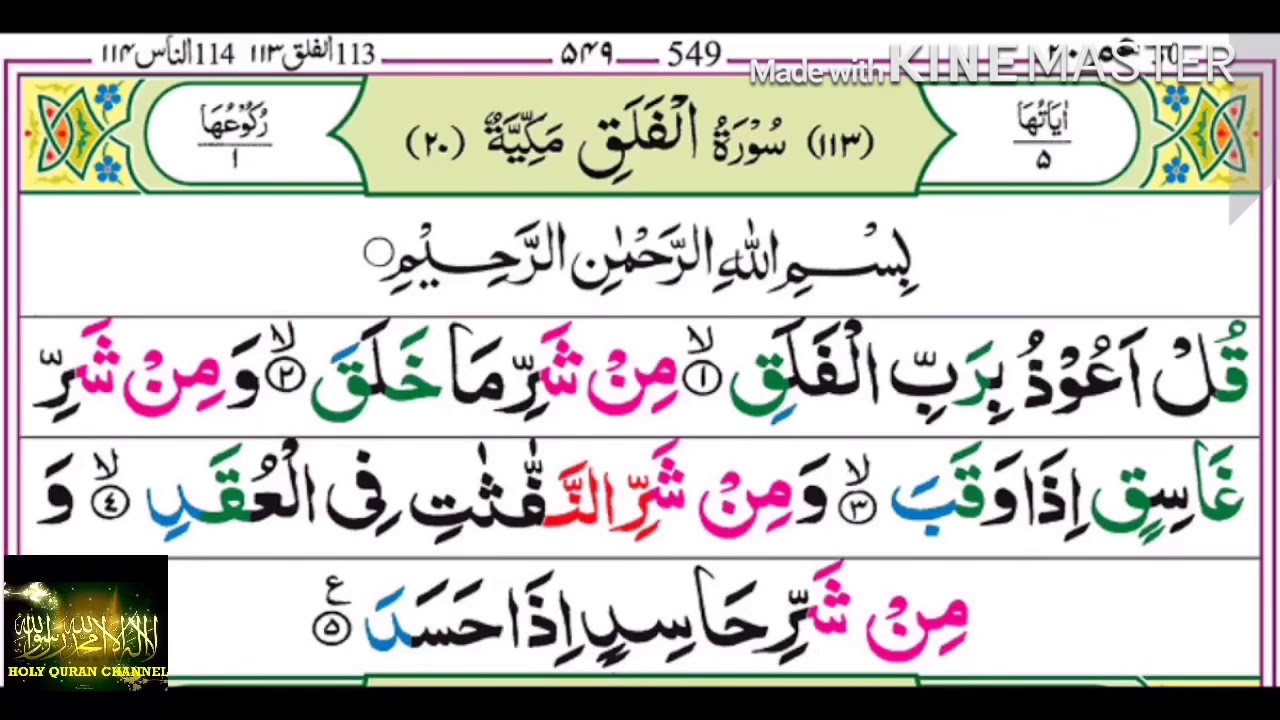 الناس ١١٤ 114 الفلق ١١٣ 113 ۵۴۹ — 549 عم ٣٠ 30
Made with KINEMASTER
اٰيَاتُهَا ۵ (١١٣) سُوْرَةُ الْفَلَقِ مَكِّيَّةٌ (٢٠) رُكُوْعُهَا ١
بِسْمِ اللهِ الرَّحْمٰنِ الرَّحِيْمِ
قُلْ اَعُوْذُ بِرَبِّ الْفَلَقِ ۙ﴿١﴾ مِنْ شَرِّ مَا خَلَقَ ۙ﴿٢﴾ وَ مِنْ شَرِّ
غَاسِقٍ اِذَا وَقَبَ ۙ﴿٣﴾ وَ مِنْ شَرِّ النَّفّٰثٰتِ فِى الْعُقَدِ ۙ﴿۴﴾ وَ
مِنْ شَرِّ حَاسِدٍ اِذَا حَسَدَ ﴿۵﴾ ع
لا اله الا الله محمد رسول الله
HOLY QURAN CHANNEL